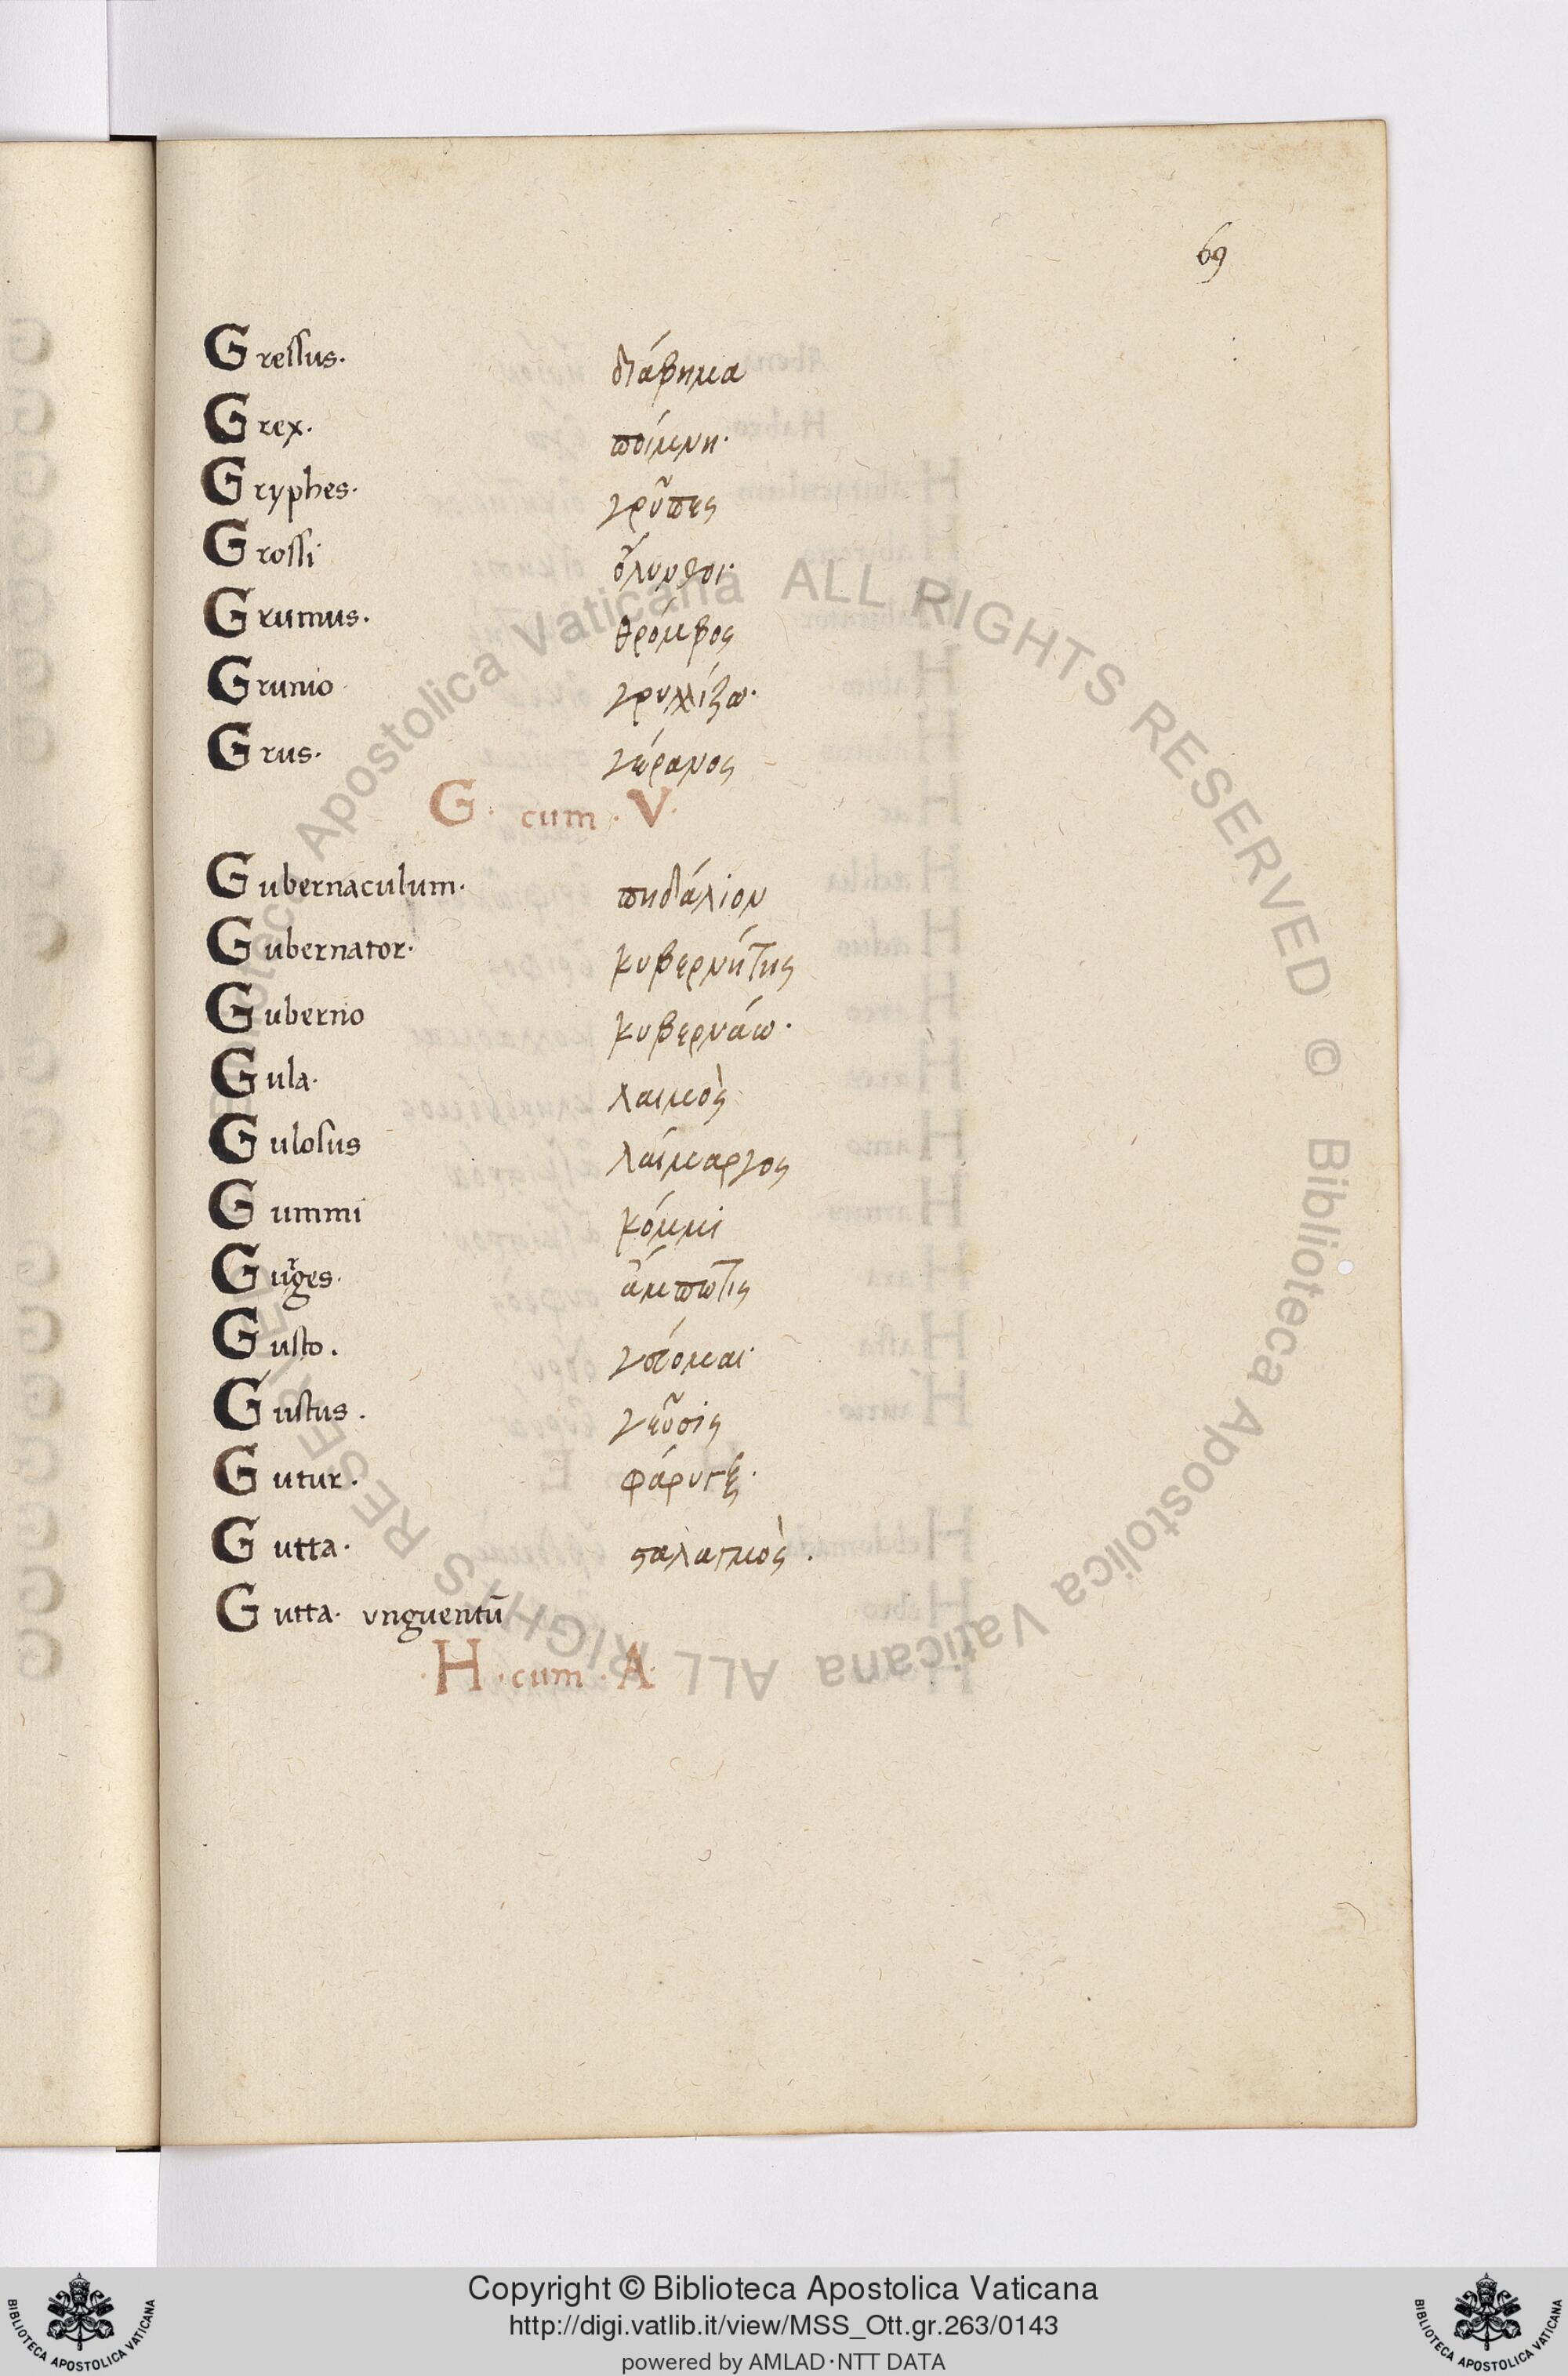 69
Gressus. διάβημα
Grex. ποίμνη·
Gryphes. γρῦπες
Grossi ὄλυνθοι·
Grumus. θρόμβος
Grunio γρυλλίζω·
Grus. γέρανος
G · cum · V ·
Gubernaculum. πηδάλιον
Gubernator. κυβερνήτης
Guberno κυβερνάω·
Gula. λαιμὸς
Gulosus λαίμαργος
Gummi κόμμι
Gurges. ἄμπωτις
Gusto. γεύομαι
Gustus. γεῦσις
Gutur. φάρυγξ·
Gutta. σταλαγμὸς.
Gutta. vnguentū
· H · cum · A ·
Biblioteca Apostolica Vaticana ALL RIGHTS RESERVED © Biblioteca Apostolica Vaticana ALL RIGHTS RESERVED
Copyright © Biblioteca Apostolica Vaticana
http://digi.vatlib.it/view/MSS_Ott.gr.263/0143
powered by AMLAD·NTT DATA
BIBLIOTECA APOSTOLICA VATICANA
BIBLIOTECA APOSTOLICA VATICANA